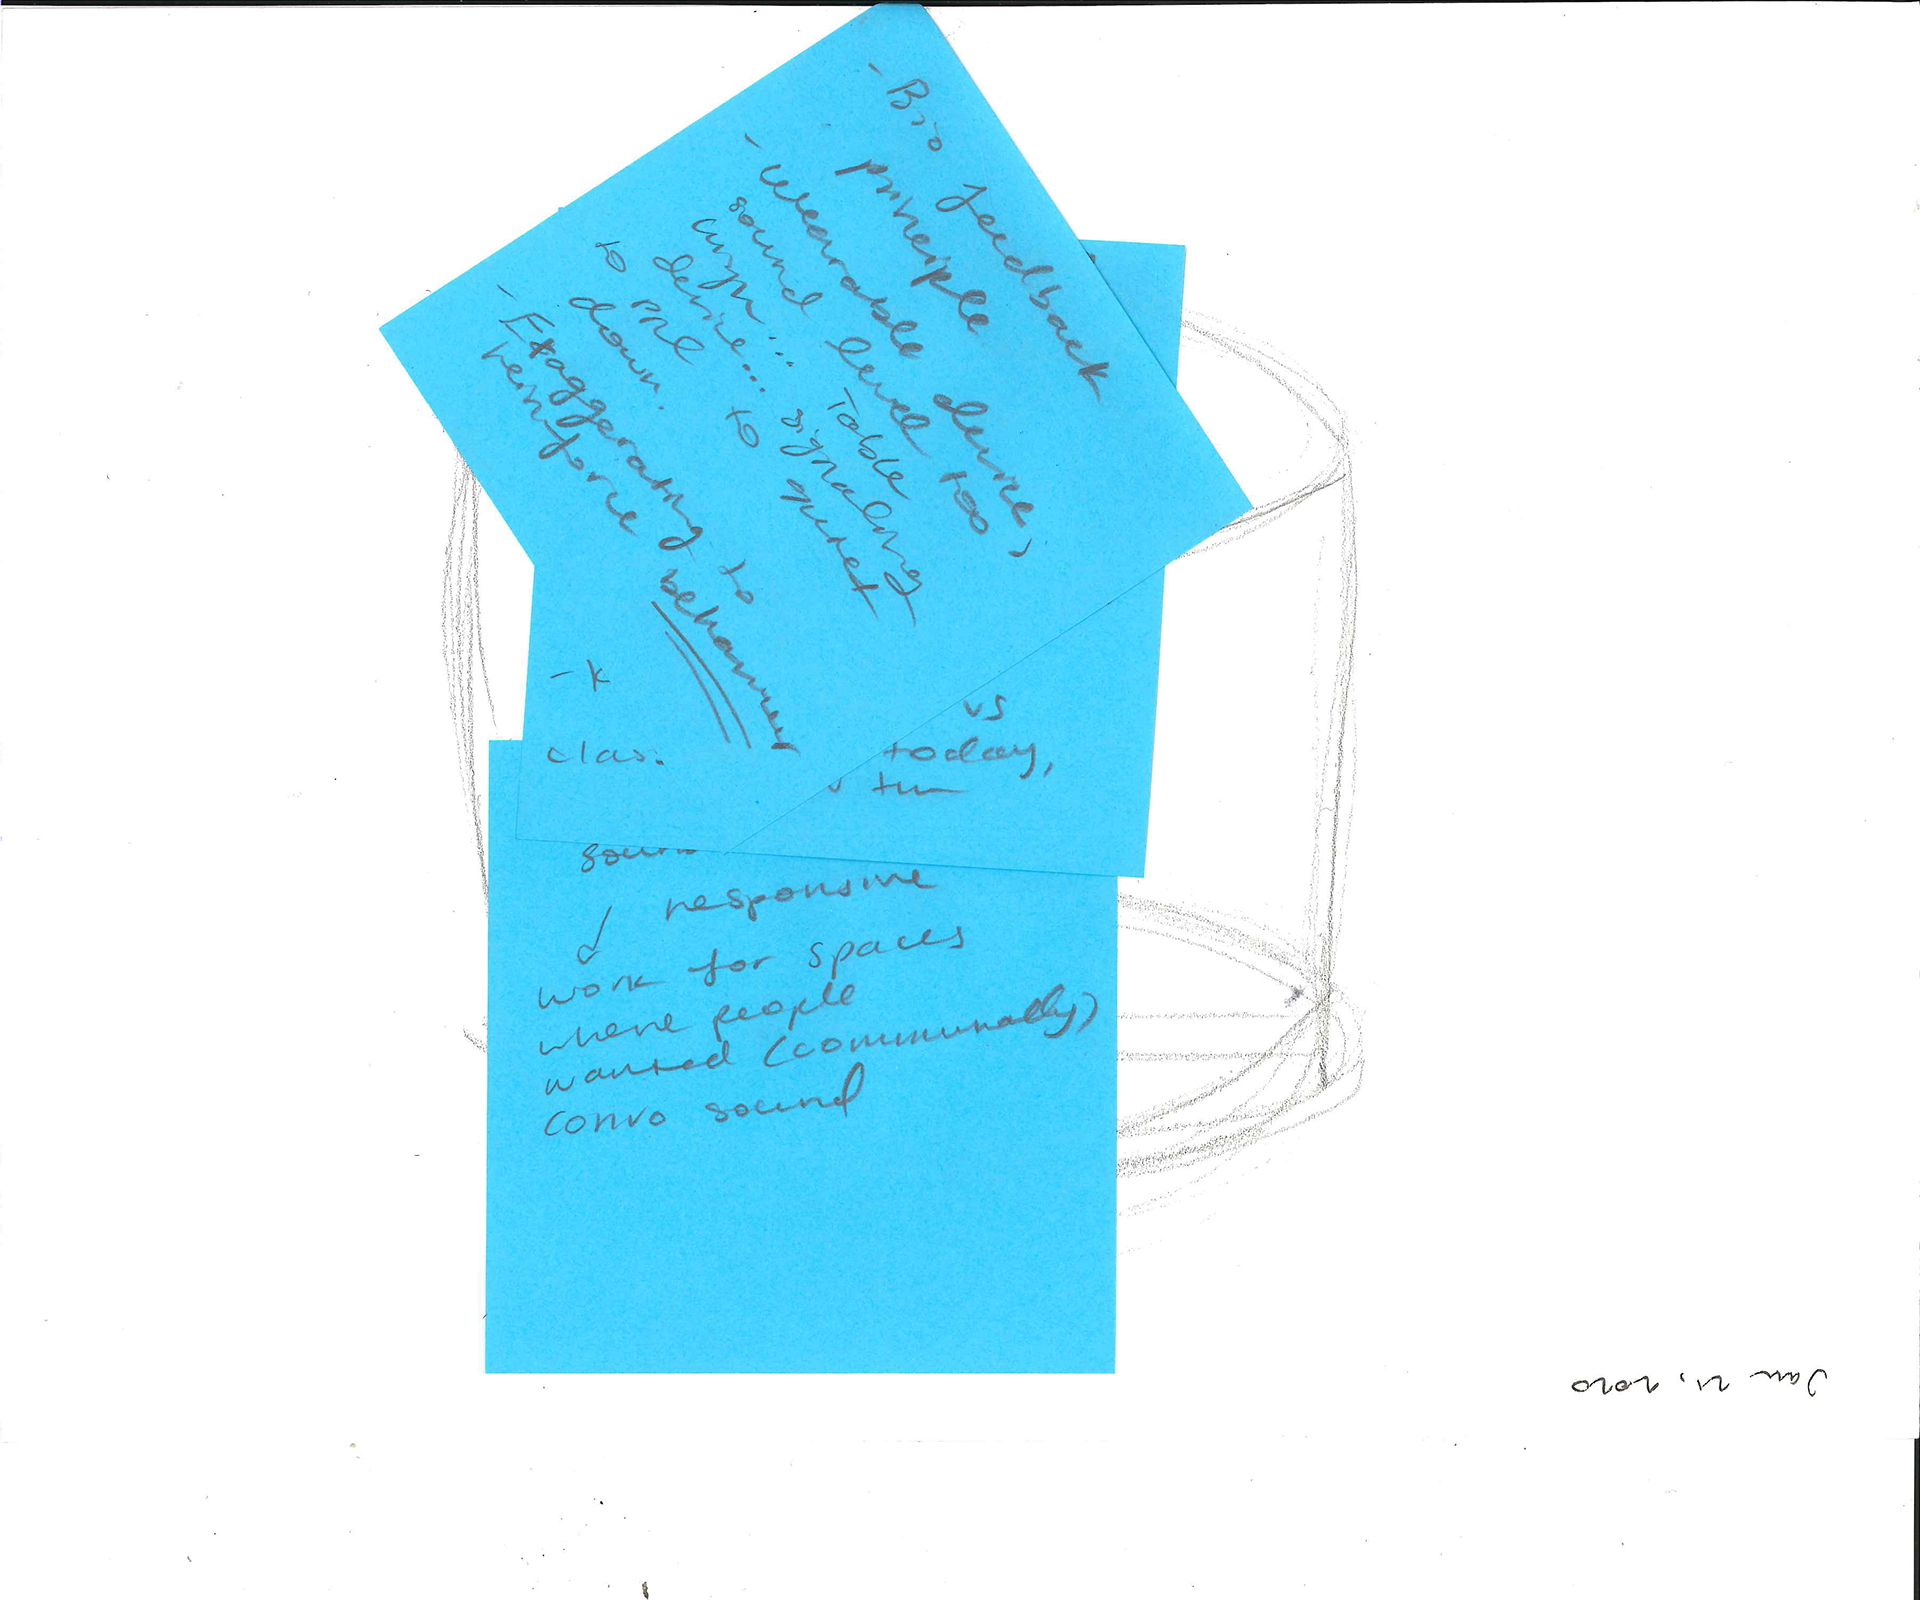 - Bio feedback
principle
- wearable device,
sound level too
... Table
device... signaling
to PPL to quiet
down.
- Exaggerating to
reinforce behaviour
- K
vs
clas.
today,
soun
responsive
work for spaces
where people
wanted (communally)
convo sound
Jan 21, 2020